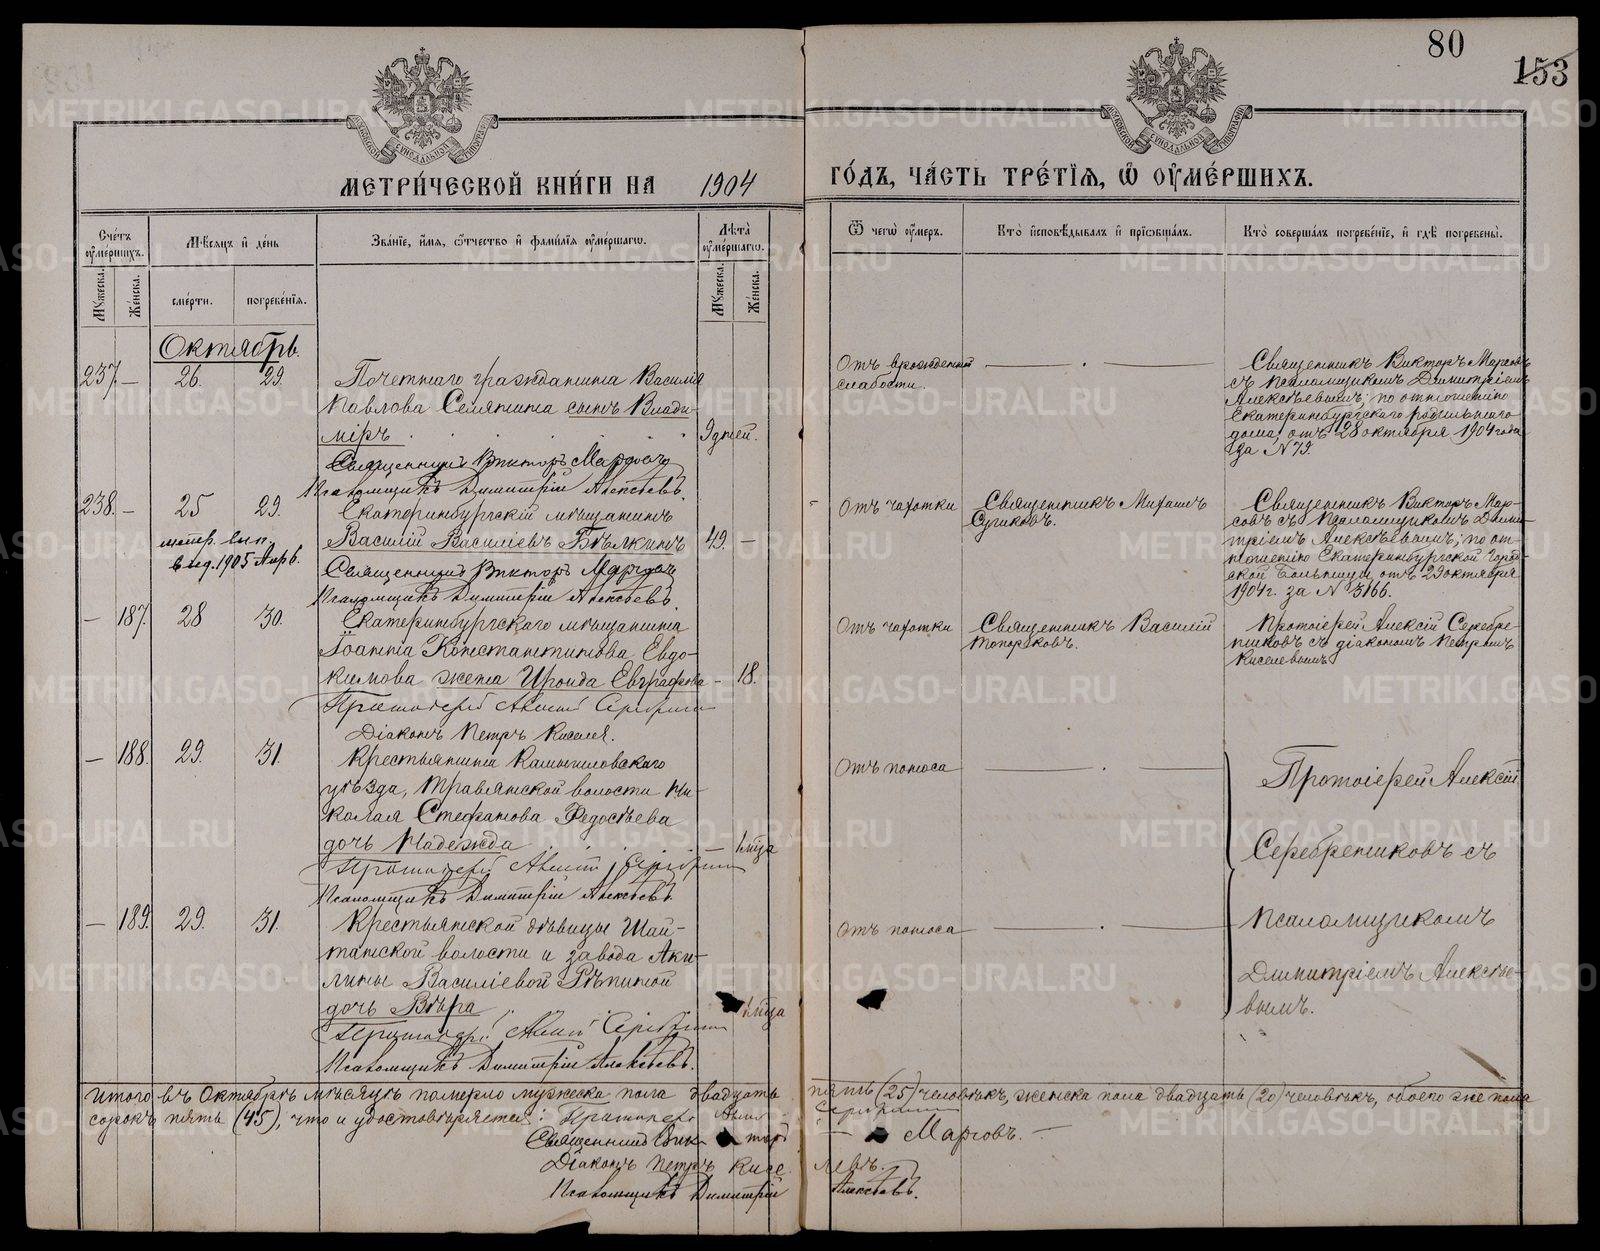 80
153
МЕТРИ́ЧЕСКОЙ КНИ́ГИ НА 1904 ГО́ДЪ, ЧА́СТЬ ТРЕ́ТІѦ, Ѡ҆ ОУ҆МЕ́РШИХЪ.
Сче́тъ оу҆ме́ршихъ.
Мѣ́сѧцъ и҆ де́нь
Зва́нїе, и҆́мѧ, ѻ҆́тчество и҆ фами́лїѧ оу҆ме́ршагѡ.
Лѣ́та оу҆ме́ршагѡ.
Ѿ чегѡ̀ оу҆́меръ.
Кто̀ и҆сповѣ́дывалъ и҆ прїѡбща́лъ.
Кто̀ соверша́лъ погребе́нїе, и҆ гдѣ̀ погребены̀.
Мꙋ́жеска.
Же́нска.
сме́рти.
погребе́нїѧ.
Мꙋ́жеска.
Же́нска.
Октябрь.
237. — 26. 29.
Почетнаго гражданина Василія
Павлова Селянина сынъ Влади-
міръ
9 дней.
Священникъ Викторъ Марсовъ
Псаломщикъ Димитрій Алексѣевъ.
Отъ врожденной
слабости.
Священникъ Викторъ Марсовъ
съ псаломщикомъ Димитріемъ
Алексѣевымъ; по отношенію
Екатеринбургскаго родильнаго
дома, отъ 28 октября 1904 года
за N 79.
238. — 25 29.
метр. вып.
въ 1905 Апр 6.
Екатеринбургскій мѣщанинъ
Василій Василіевъ Бѣлкинъ
49. —
Священникъ Викторъ Марсовъ
Псаломщикъ Димитрій Алексѣевъ.
Отъ чахотки
Священникъ Михаилъ
Сушковъ.
Священникъ Викторъ Мар-
совъ съ псаломщикомъ Дими-
тріемъ Алексѣевымъ; по от-
ношенію Екатеринбургской Город-
ской Больницы, отъ 29 октября
1904 г. за N 3166.
— 187. 28 30.
Екатеринбургскаго мѣщанина
Іоанна Константинова Евдо-
кимова жена Ираида Евграфова
— 18.
Протоіерей Алексій Серебренн
Діаконъ Петръ Киселев.
Отъ чахотки
Священникъ Василій
Топорковъ.
Протоіерей Алексій Серебре-
нниковъ съ діакономъ Петромъ
Киселевымъ
— 188. 29. 31.
Крестьянина Камышловскаго
уѣзда, Травянской волости Ни-
колая Стефанова Федосѣева
дочь Надежда
— 1 мѣ́ца
Протоіерей Алексій Серебренн
Псаломщикъ Димитрій Алексѣевъ.
Отъ поноса
Протоіерей Алексій
Серебренниковъ съ
псаломщикомъ
Димитріемъ Алексѣе-
вымъ.
— 189. 29. 31.
Крестьянской дѣвицы Шай-
танской волости и завода Аки-
лины Василіевой Рѣпиной
дочь Вѣра
мѣ́ца
Протоіерей Алексій Серебренн
Псаломщикъ Димитрій Алексѣевъ.
Отъ поноса
Итого въ Октябрѣ мѣсяцѣ померло мужеска пола двадцать пять (25) человѣкъ, женска пола двадцать (20) человѣкъ, обоего же пола
сорокъ пять (45), что и удостовѣряется: Протоіерей Алексій Серебренн
Священникъ Викторъ Марсовъ. —
Діаконъ Петръ Киселевъ.
Псаломщикъ Димитрій Алексѣевъ.
METRIKI.GASO-URAL.RU